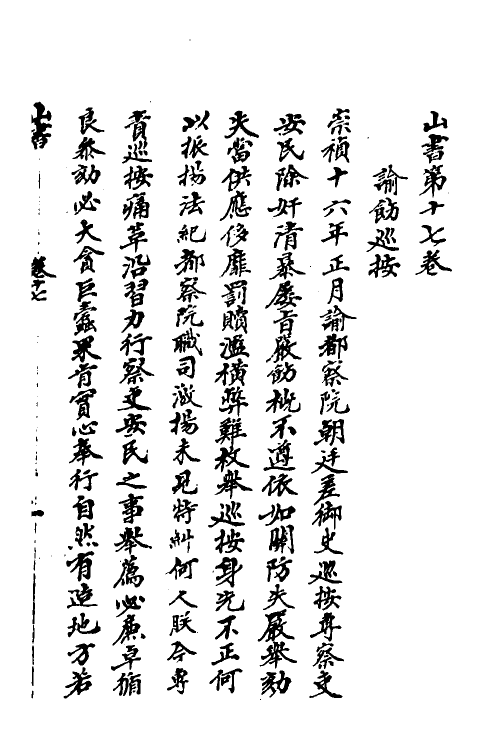 山書第十七卷
諭飭巡按
崇禎十六年正月諭都察院朝廷差御史巡按專察吏
安民除奸清暴屢旨嚴飭槪不遵依如關防失嚴舉劾
失當供應侈靡罰贖濫橫弊難枚舉巡按身先不正何
以振揚法紀都察院職司激揚未見特糾何人朕今專
責巡按痛革沿習力行察吏安民之事舉薦必廉卓循
良參劾必大貪巨蠹果肯實心奉行自然有造地方若
山書
卷十七
一